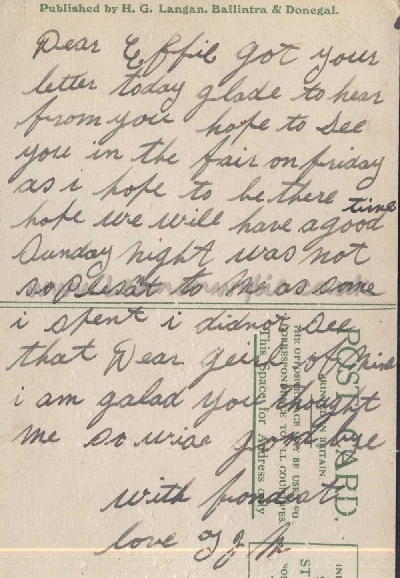 Published by H. G. Langan. Ballintra & Donegal.
Dear Effie got your
letter today glade to hear
from you hope to see
you in the fair on friday
as i hope to be there
hope we will have a good time
Sunday night was not
so plesat to me as some
i spent i didnot see
that Dear geirl of mine
i am galad you thought
me so wise good bye
with fondest
love
POST CARD.
PRINTED IN BRITAIN.
THE OPPOSITE FACE MAY BE USED TO
CORRESPONDENCE TO ALL COUNTRIES
This Space for Address only